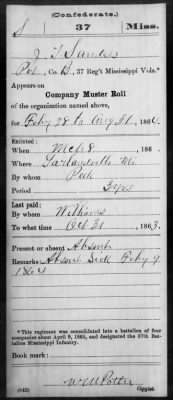 (Confederate.)
S 37 Miss.
J. T. Sanders
Pvt, Co. B, 37 Reg't Mississippi Vols.*
Appears on
Company Muster Roll
of the organization named above,
for Feby 28 to Aug 31, 1864.
Enlisted:
When Mch 8, 186 .
Where Garlandville Mi
By whom
Period 3 yrs
Last paid:
By whom Williams
To what time Oct 31, 1863.
Present or absent Absent
Remarks: Absent Sick Feby 9
1864
*This regiment was consolidated into a battalion of four
companies about April 9, 1865, and designated the 37th Bat-
talion Mississippi Infantry.
Book mark:
(642) W M Potter
Copyist.